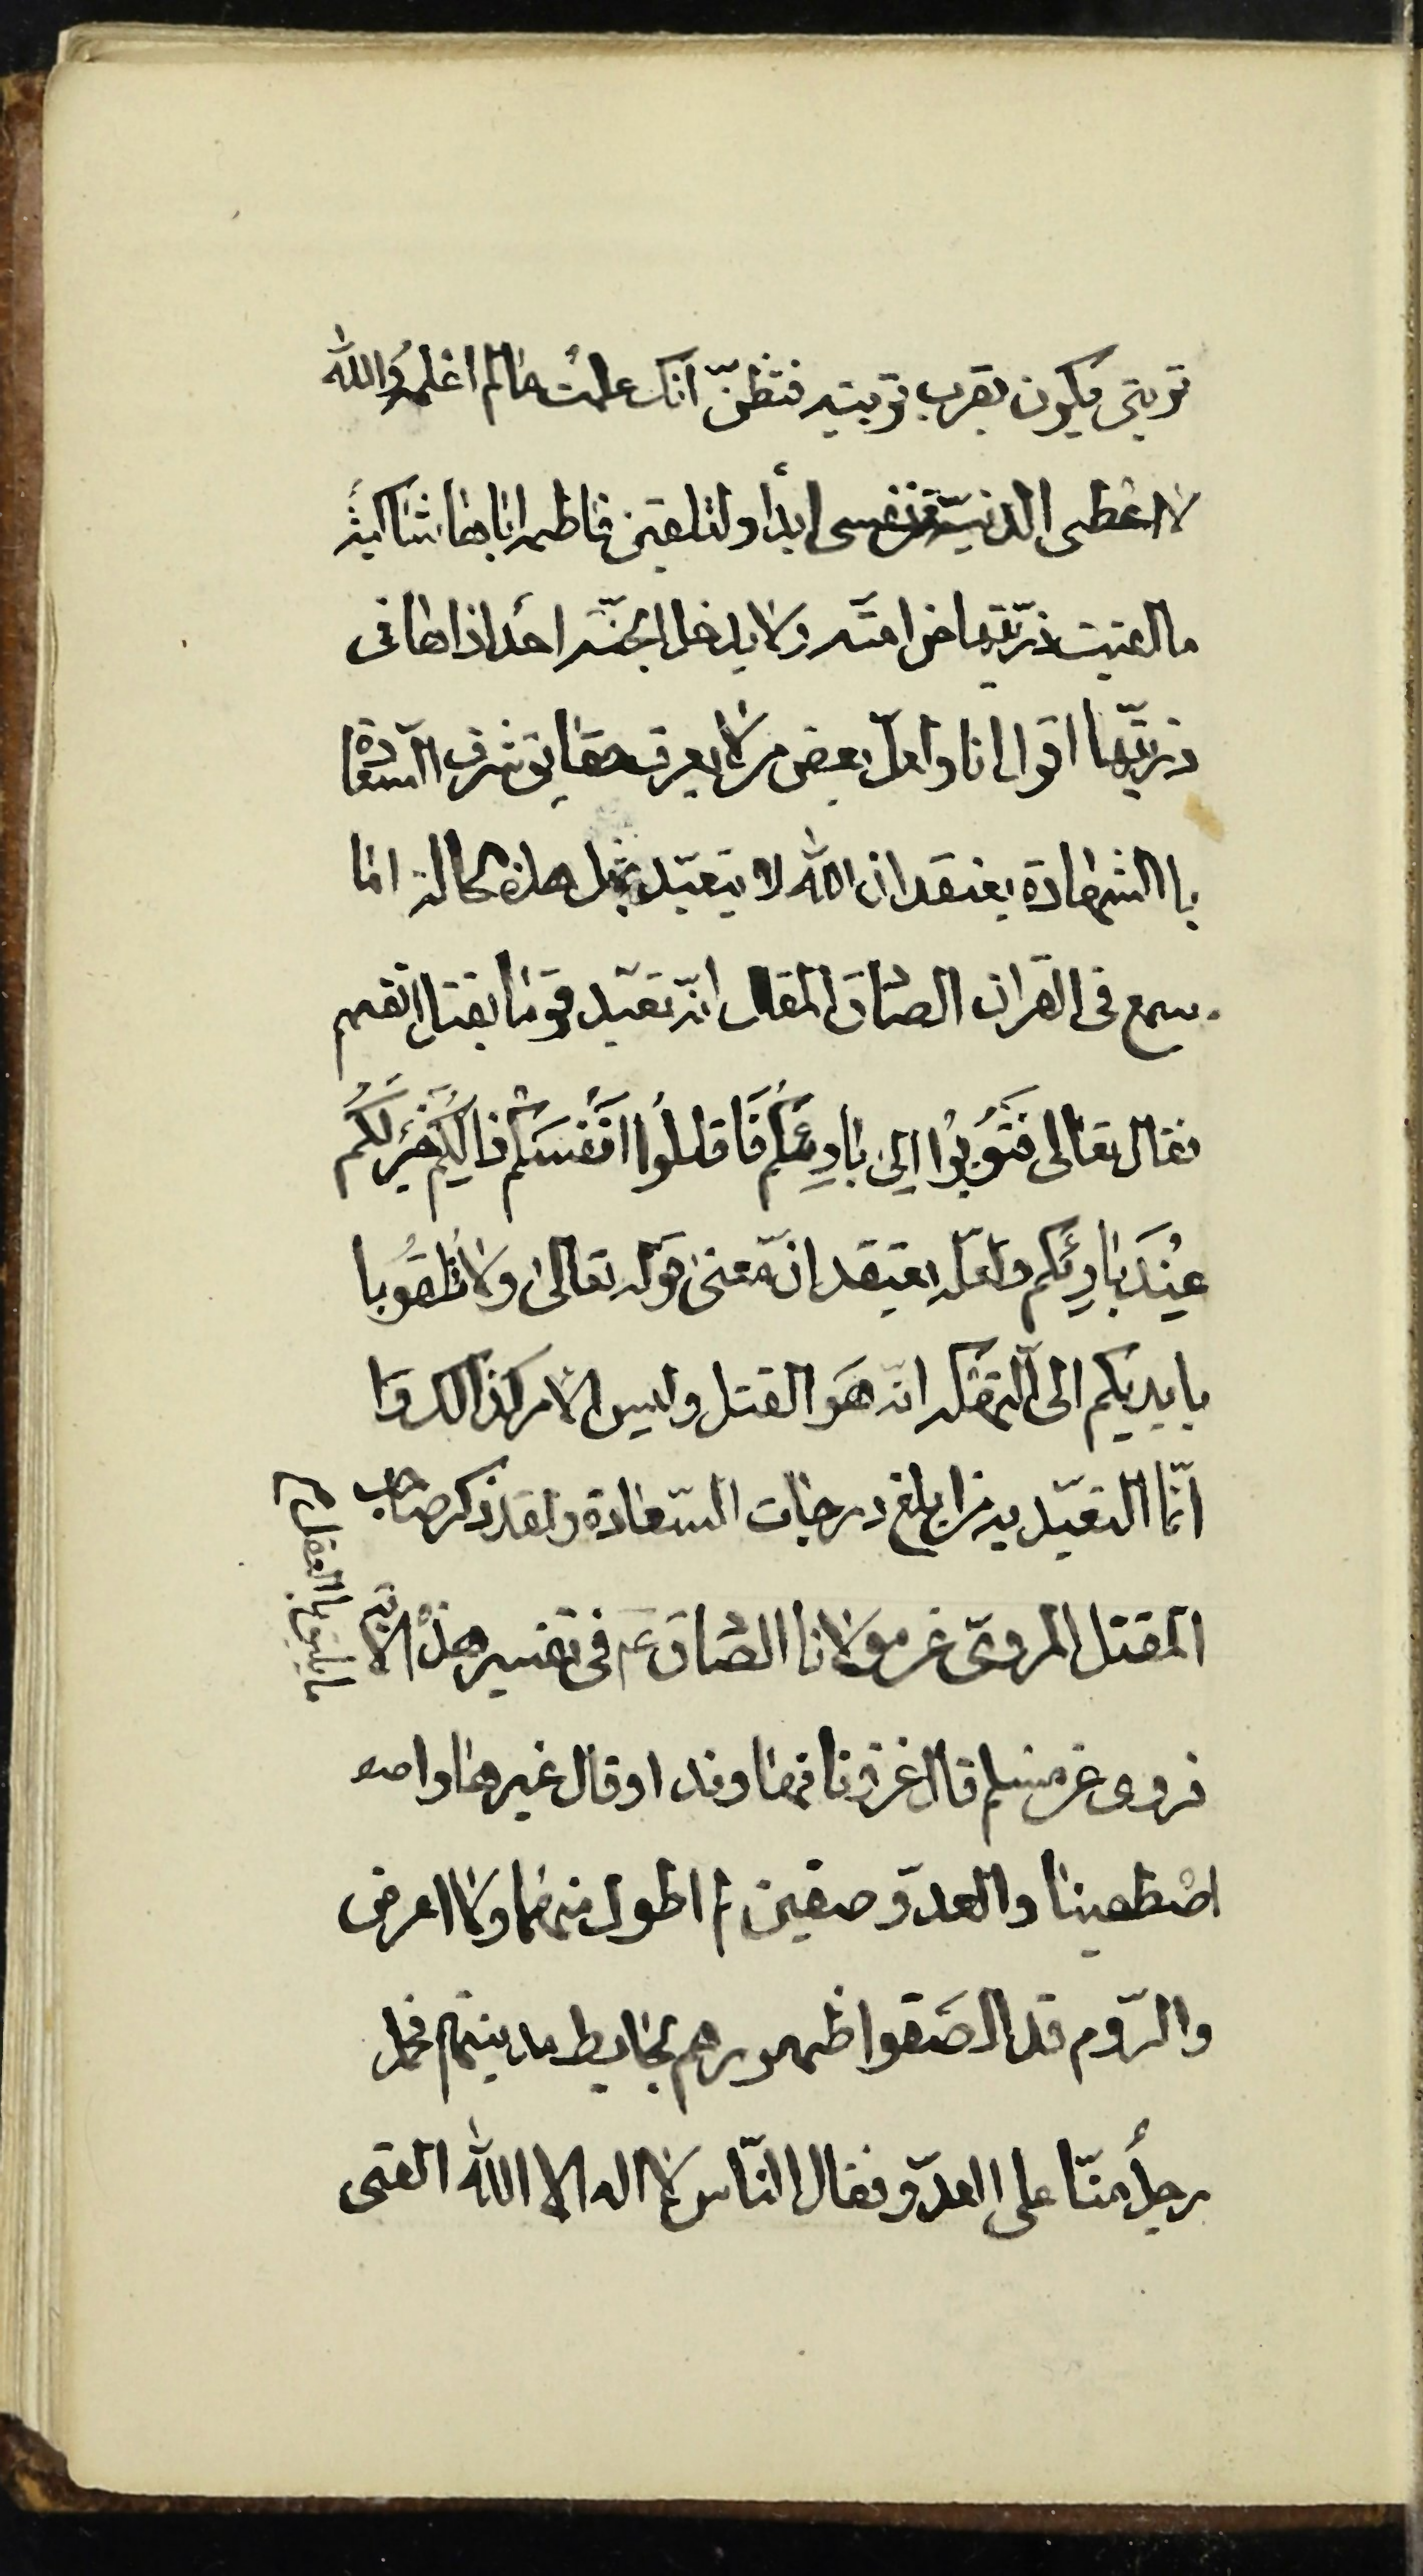 تربتى فيكون بقرب تربتيه فتظنّ انك علمت مالم اعلمه والله
لا اعطى الدنيّة من نفسى ابدًا ولتلقين فاطمه اباها شاكيه
ما لقيت ذرّيّتها من امّته ولا يدخل الجنّه احد اذاها فى
ذريّتها اقول انا ولعلّ بعض من لا يعرف حقايق شرف السّعادة
با الشهادة يعتقد ان الله لا يتعبّد بمثل هذه الحالة اما
سمع فى القران الصّادق المقال انّه تعبّد قوما بقتل انفسهم
فقال تعالى فَتُوبُوا اِلى بارِئكُم فَاقتلُوا اَنفُسَكُم ذالِكُم خَيْرٌ لَكُم
عِنْدَ بارِئِكم ولعلّه يعتقد انّ معنى قوله تعالى ولا تُلقُوا با
بايديكم الى التّهلكه انّه هَو القتل وليس الامر كذالك وا
انّما التعبّد به من ابلغ درجات السّعادة ولقد ذكر صاحب
المقتل المروىّ عن مولانا الصّادق ع فى تفسير هذه الاية
ما يليق با العقل
فروى عن مسلم قال غزونا نهاوند او قال غيرها و
اصطفينا والعدوّ صفين لم ار اطول منهما ولا اعرض
والرّوم قد الصَقوا ظهورهم بحايط مدينتهم فحمل
رجلٌ منّا على العدوّ فقال النّاس لا اله الا الله القى